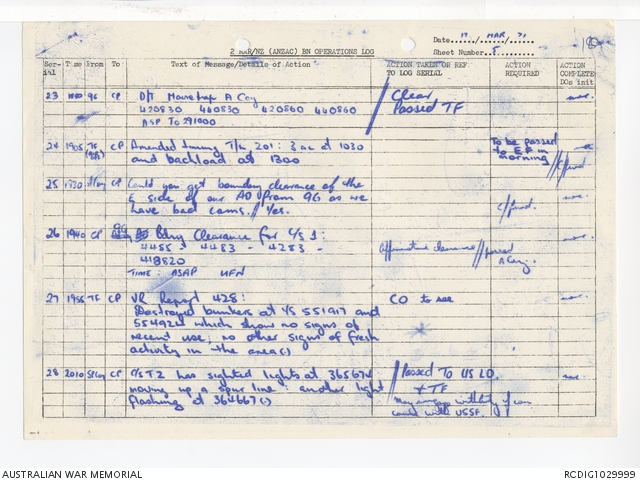 Date 17 / MAR / 71
2 RAR/NZ (ANZAC) BN OPERATIONS LOG
Sheet Number 5
Serial Time From To Text of Message/Details of Action ACTION TAKEN OR REF TO LOG SERIAL ACTION REQUIRED ACTION COMPLETE DOs init
23 96 CP D/T Mousetrap A Coy // Clear
420830 440830 420860 440860 Passed TF
ASP To 291000
24 1905 TF CP Amended timing T/L 201: 3 ac at 1030 To be passed
and backload at 1300 to in morning
25 1930 CP Could you get boundary clearance of the
E side of our AO from 9G as we
have bad coms. // Yes.
26 1940 CP 9G Bdry Clearance for C/S 1:
4485 - 4483 - 4283 - Affirmative clearance // passed
418820 A Coy.
TIME: ASAP UFN
27 1955 TF CP VR Report 428: CO to see
Destroyed bunkers at Y/S 551917 and
554924 which show no signs of
recent use; no other signs of fresh
activity in the area(.)
28 2010 CP C/S T2 has sighted lights at 365674 // Passed To US LO
moving up a spur line: another light + TF
flashing at 364667(.) could with USSF.
AUSTRALIAN WAR MEMORIAL RCDIG1029999